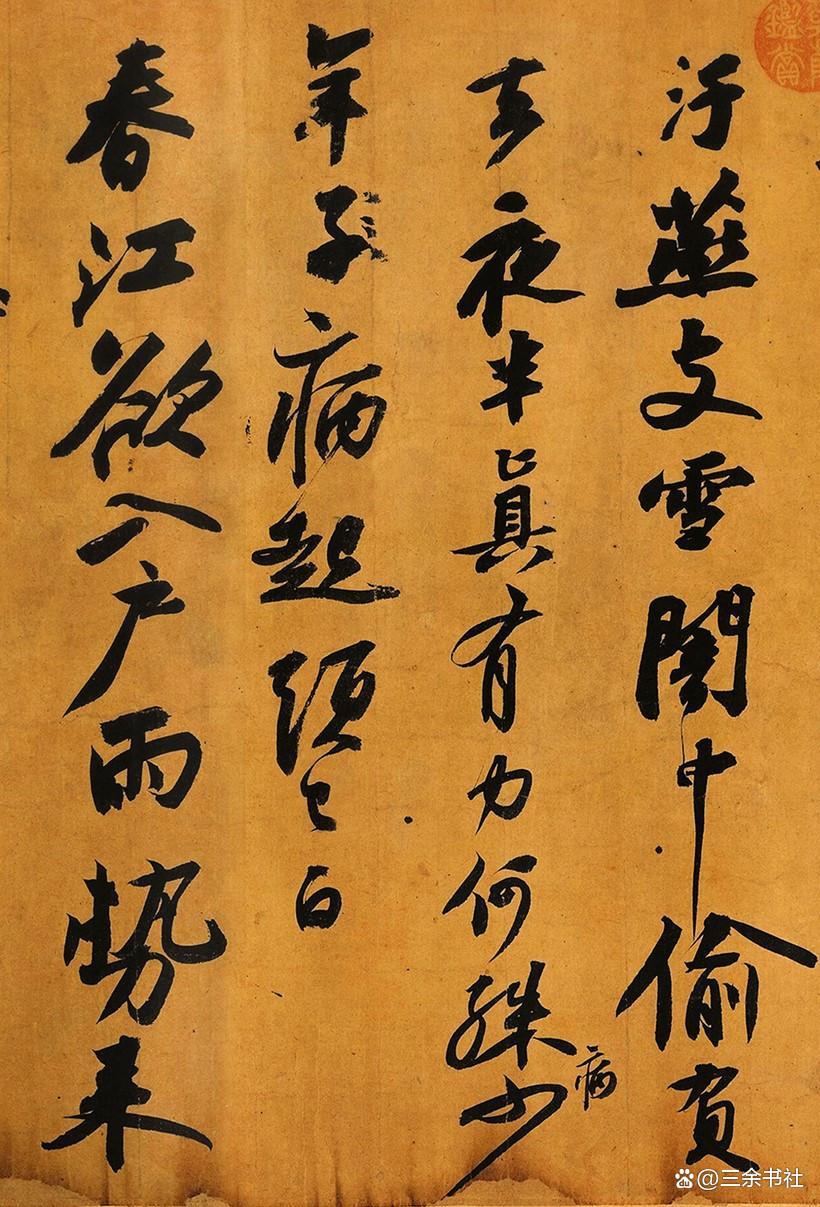 鑑賞
汙燕支雪闇中偷負
去夜半真有力何殊少
病
年子病起頭已白
春江欲入戶雨勢來
@三余书社